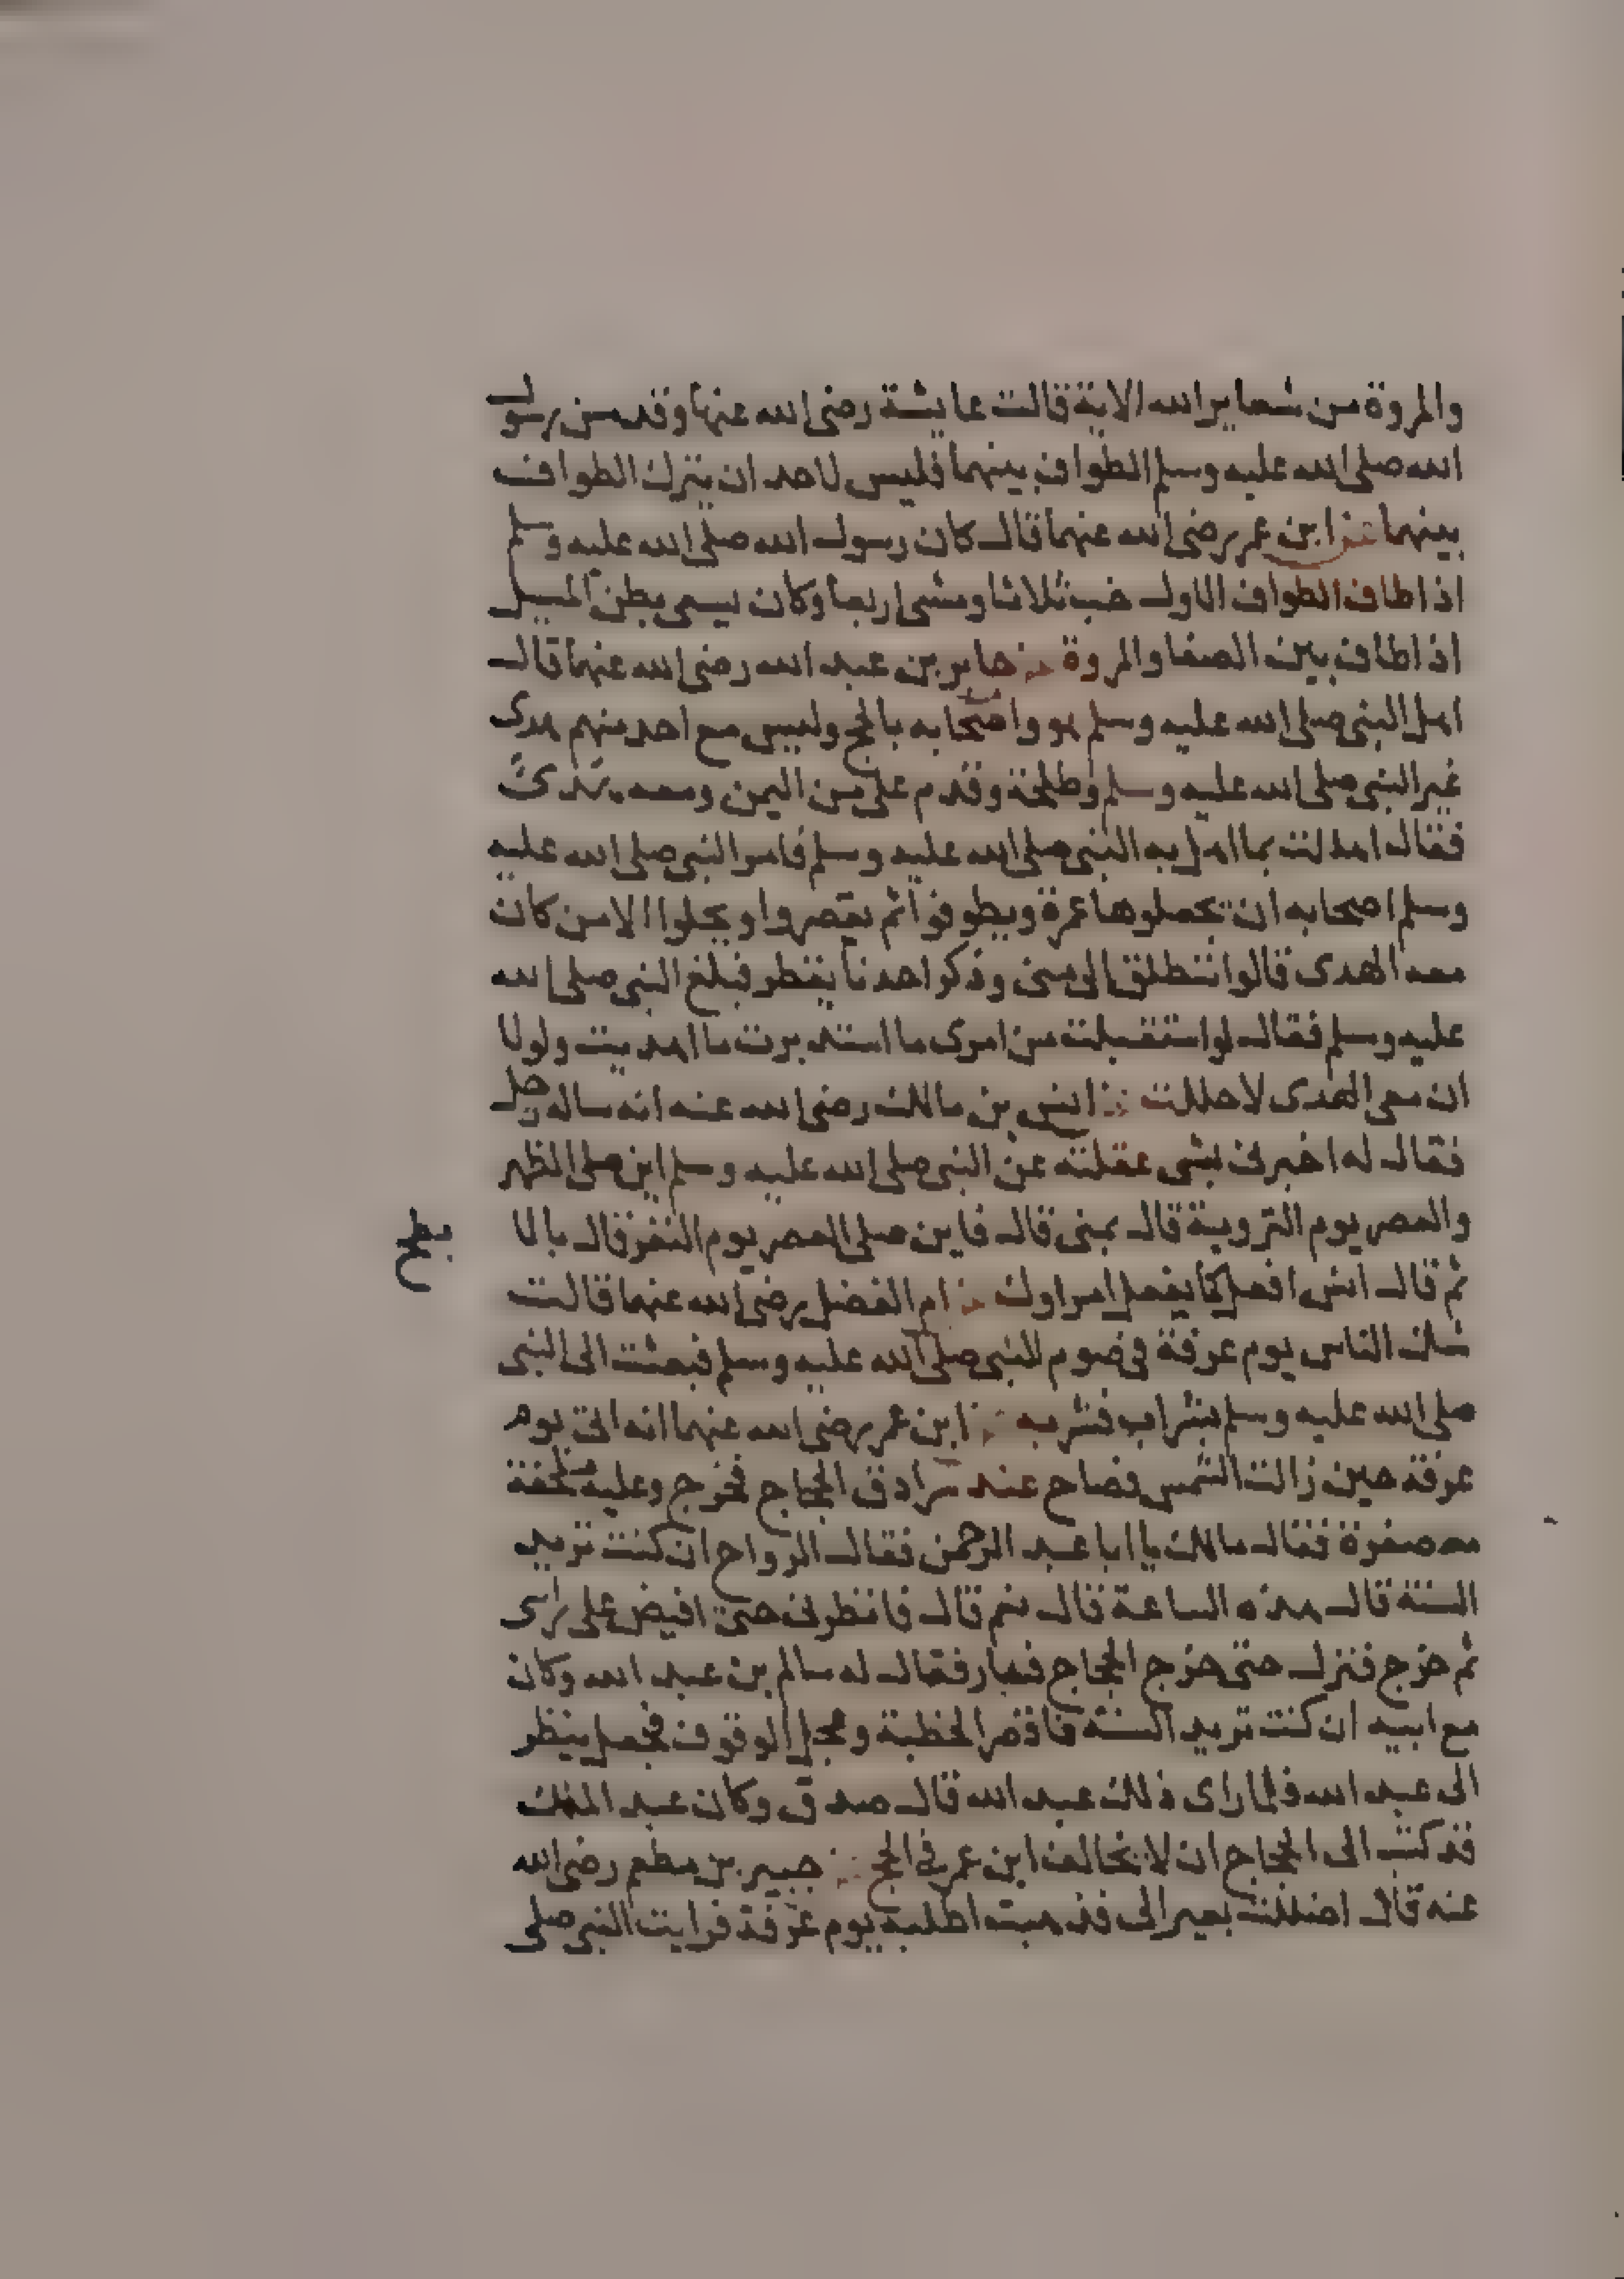 والمروة من شعاير الله الاية قالت عايشة رضي الله عنها وقد سن رسول
الله صلى الله عليه وسلم الطواف بينهما فليس لاحد ان يترك الطواف
بينهما عن ابن عمر رضي الله عنهما قال كان رسول الله صلى الله عليه وسلم
اذا طاف الطواف الاول خب ثلاثا ومشى اربعا وكان يسعى بطن المسيل
اذا طاف بين الصفا والمروة عن جابر بن عبد الله رضي الله عنهما قال
اهل النبي صلى الله عليه وسلم هو واصحابه بالحج وليس مع احد منهم هدى
غير النبي صلى الله عليه وسلم وطلحة وقدم علي من اليمن ومعه هدى
فقال اهللت بما اهل به النبي صلى الله عليه وسلم فامر النبي صلى الله عليه
وسلم اصحابه ان يجعلوها عمرة ويطوفوا ثم يقصروا ويحلوا الا من كان
معه الهدى قالوا ننطلق الى منى وذكر احدنا يقطر فبلغ النبي صلى الله
عليه وسلم فقال لو استقبلت من امرى ما استدبرت ما اهديت ولولا
ان معى الهدى لاحللت عن انس بن مالك رضي الله عنه انه ساله رجل
فقال له اخبرنى بشى عقلته عن النبي صلى الله عليه وسلم اين صلى الظهر
والعصر يوم التروية قال بمنى قال فاين صلى العصر يوم النفر قال بالا
بطح
ثم قال انس افعل كما يفعل امراوك عن ام الفضل رضي الله عنها قالت
شك الناس يوم عرفة في صوم النبي صلى الله عليه وسلم فبعثت الى النبي
صلى الله عليه وسلم بشراب فشربه عن ابن عمر رضي الله عنهما انه اتى يوم
عرفة حين زالت الشمس فصاح عند سرادق الحجاج فخرج وعليه ملحفة
معصفرة فقال مالك يا ابا عبد الرحمن فقال الرواح ان كنت تريد
السنة قال هذه الساعة قال نعم قال فانظرنى حتى افيض على راسى
ثم خرج فنزل حتى خرج الحجاج فسار فقال له سالم بن عبد الله وكان
مع ابيه ان كنت تريد السنة فاقصر الخطبة وعجل الوقوف فجعل ينظر
الى عبد الله فلما راى ذلك عبد الله قال صدق وكان عبد الملك
قد كتب الى الحجاج ان لا يخالف ابن عمر في الحج عن جبير بن مطعم رضي الله
عنه قال اضللت بعيرا لى فذهبت اطلبه يوم عرفة فرايت النبي صلى